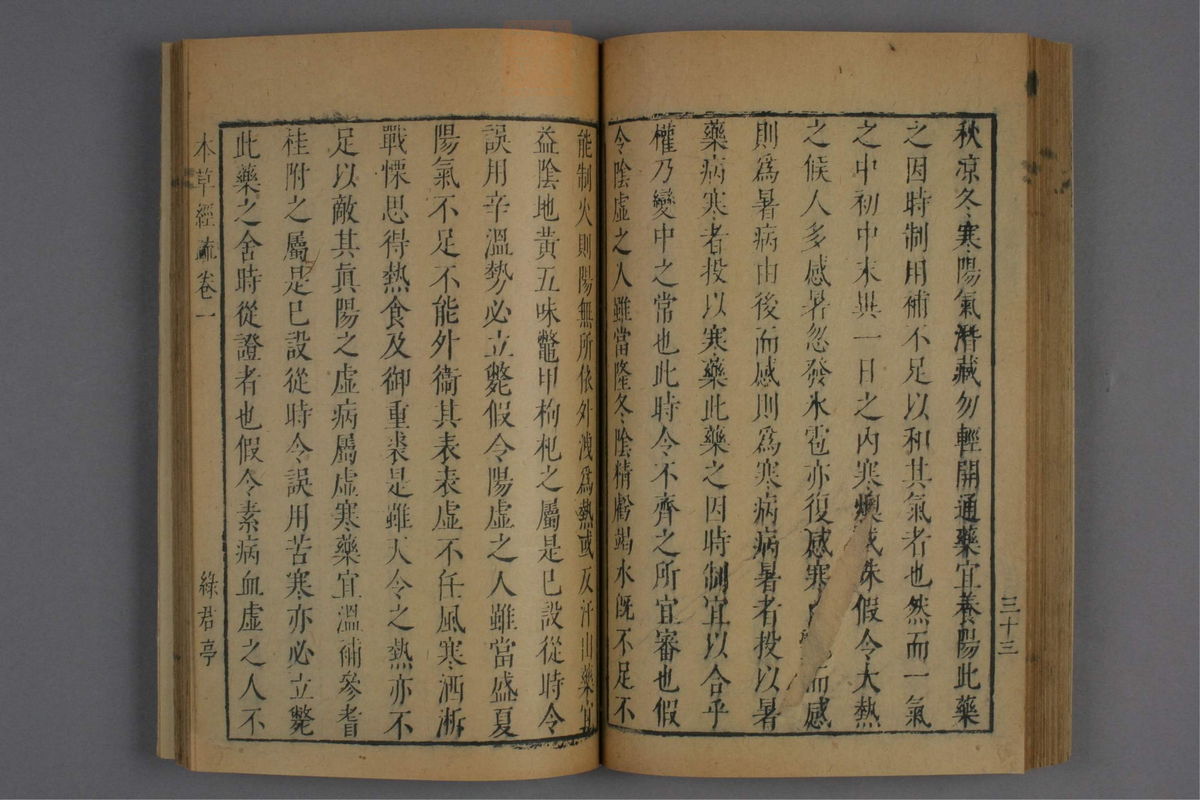 三十三
秋凉冬寒陽氣潛藏勿輕開通藥宜養陽此藥
之因時制用補不足以和其氣者也然而一氣
之中初中末異一日之內寒燠或殊假令大熱
之候人多感暑忽發氷雹亦復感寒由而感
則爲暑病由後而感則爲寒病病暑者投以暑
藥病寒者投以寒藥此藥之因時制宜以合乎
權乃變中之常也此時令不齊之所宜審也假
令陰虛之人雖當隆冬陰精虧竭水旣不足不
能制火則陽無所依外洩爲熱或反汗出藥宜
益陰地黃五味鼈甲枸杞之屬是已設從時令
誤用辛溫勢必立斃假令陽虛之人雖當盛夏
陽氣不足不能外衞其表表虛不任風寒洒淅
戰慄思得熱食及御重裘是雖天令之熱亦不
足以敵其眞陽之虛病屬虛寒藥宜溫補參耆
桂附之屬是已設從時令誤用苦寒亦必立斃
此藥之舍時從證者也假令素病血虛之人不
本草經疏卷一
綠君亭